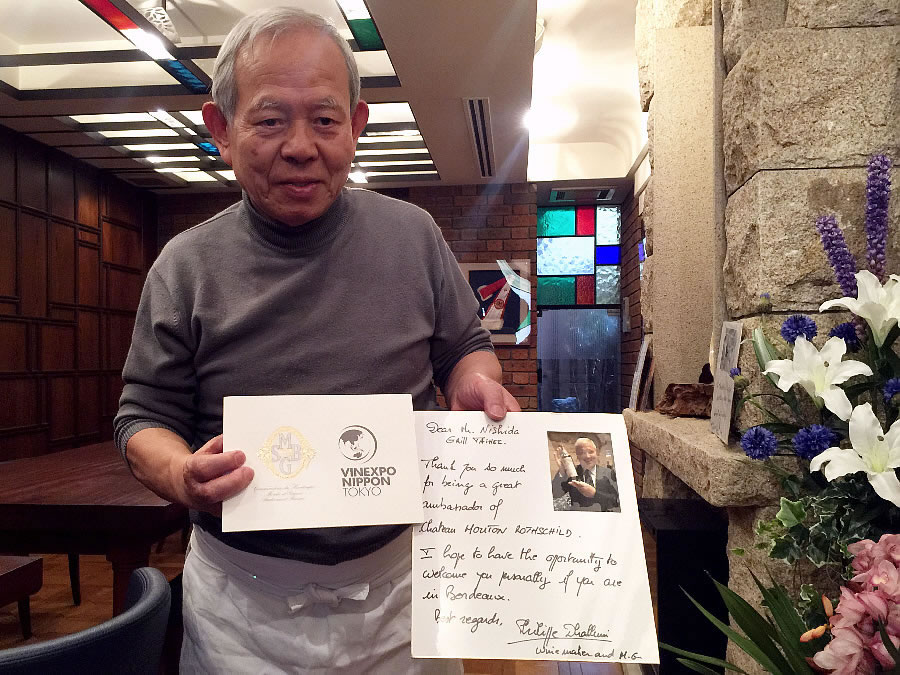 MSBG
VINEXPO
NIPPON
TOKYO
Dear Mr. Nishida
Grill YAHEI.
Thank you so much
for being a great
ambassador of
Chateau MOUTON ROTHSCHILD.
I hope to have the opportunity to
welcome you personally if you are
in Bordeaux.
Best regards,
Philippe Dhalluin
Winemaker and M.G